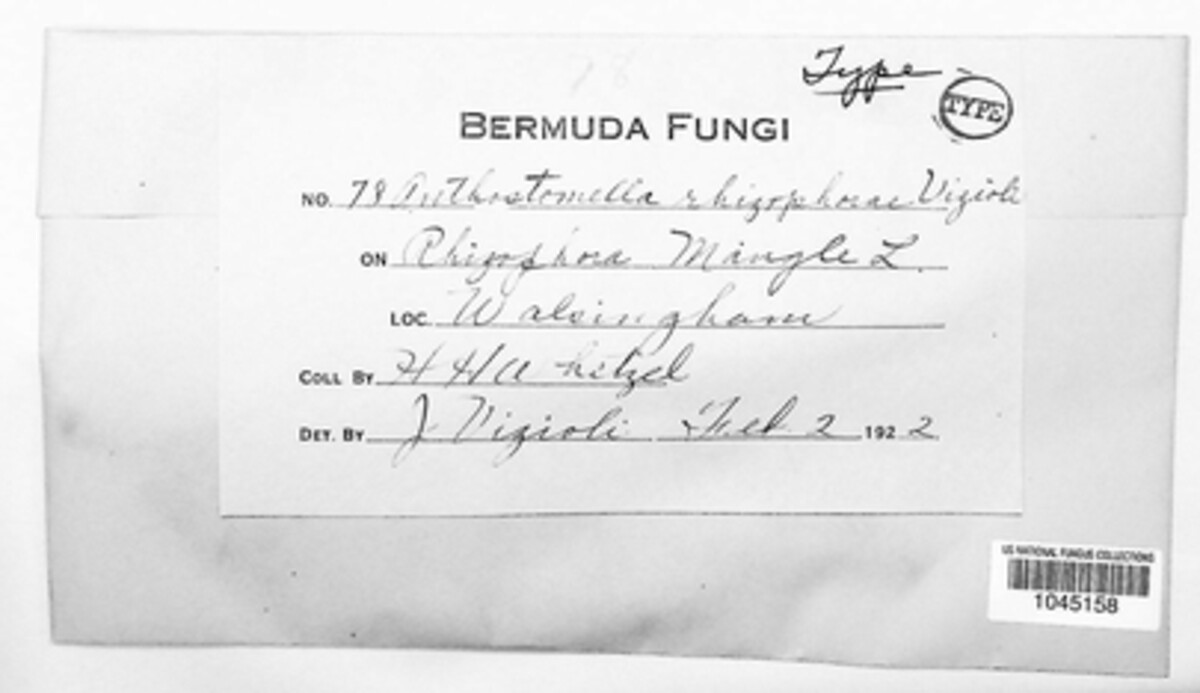 78
Type
TYPE
BERMUDA FUNGI
NO. 78 Anthostomella rhizophorae Vizioli
ON Rhizophora Mangle L.
LOC. Walsingham
COLL BY H H Whetzel
DET. BY J Vizioli Feb 2 1922
US NATIONAL FUNGUS COLLECTIONS
1045158